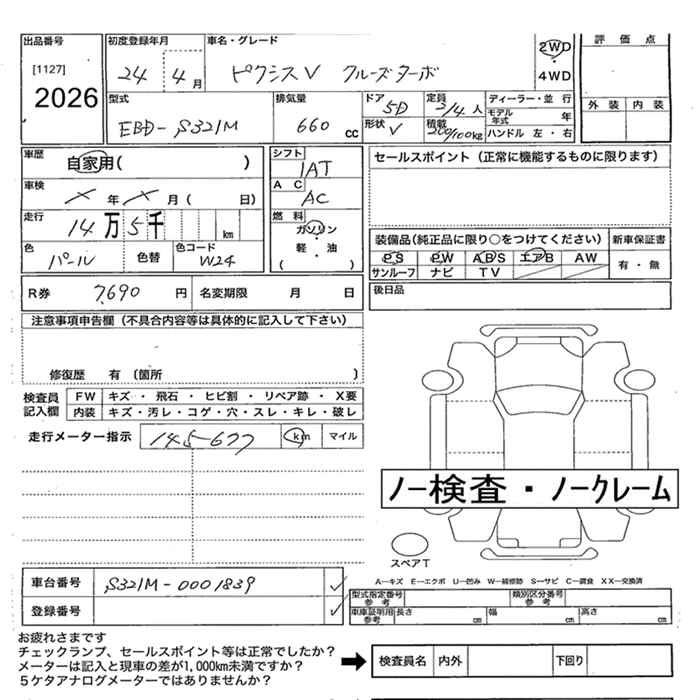 出品番号 初度登録年月 車名・グレード 2WD 評価点
[1127] 24年4月 ピクシスV クルーズターボ ・
2026 4WD
型式 排気量 ドア 5D 定員 2/4人 ディーラー・並行 外装 内装
EBD-S321M 660cc 形状 V 積載 200/100kg モデル年式 年
ハンドル 左・右
車歴 自家用( ) シフト 1AT セールスポイント(正常に機能するものに限ります)
車検 ×年×月(日) AC AC
走行 14万5千 km 燃料 ガソリン・軽・油 ( )
装備品(純正品に限り○をつけてください) 新車保証書
色 パール 色替 色コード W24 PS PW ABS エアB AW 有・無
サンルーフ ナビ TV
R券 7,690円 名変期限 月 日 後日品
注意事項申告欄(不具合内容等は具体的に記入して下さい)
修復歴 有〔箇所 〕
検査員記入欄 FW キズ・飛石・ヒビ割・リペア跡・X要
内装 キズ・汚レ・コゲ・穴・スレ・キレ・破レ
走行メーター指示 145677 km マイル
ノー検査・ノークレーム
スペアT
車台番号 S321M-0001839 ✓
A―キズ E―エクボ U―凹み W―補修跡 S―サビ C―腐食 XX―交換済
登録番号 ✓
型式指定番号 参考 類別区分番号 参考
車庫証明用 参考 長さ cm 幅 cm 高さ cm
お疲れさまです
チェックランプ、セールスポイント等は正常でしたか?
メーターは記入と現車の差が1,000km未満ですか?
5ケタアナログメーターではありませんか?
➡ 検査員名 内外 下回り